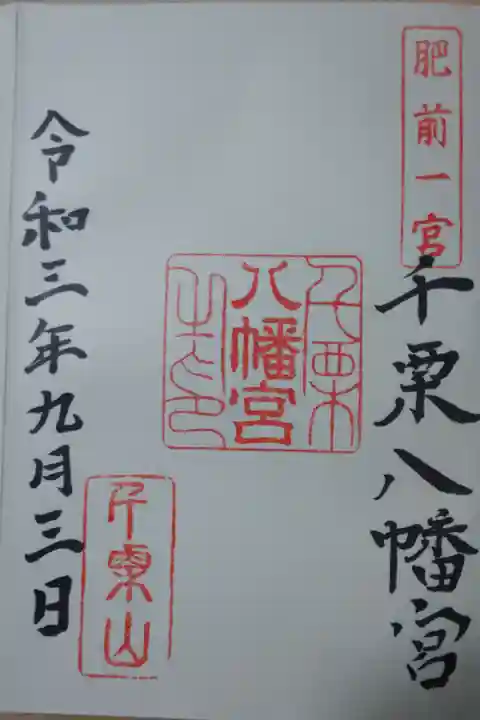 肥前一宮
千栗八幡宮
千栗
八幡宮
之印
千栗山
令和三年九月三日